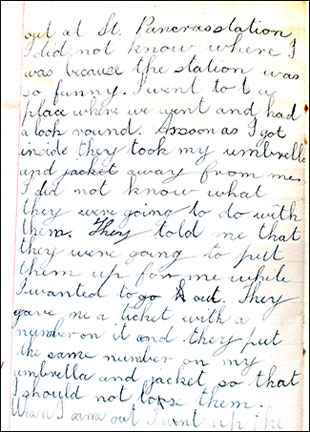 out at St. Pancrasstation
I did not know where I
was because the station was
so funny. I went to
place where we went and had
a look round. As soon as I got
inside they took my umbrella
and jacket away from me
I did not know what
they were going to do with
them. They told me that
they were going to put
them up for me while
I wanted to go out. They
gave me a ticket with a
number on it and they put
the same number on my
umbrella and jacket so that
I should not lose them.
When I came out I went up the